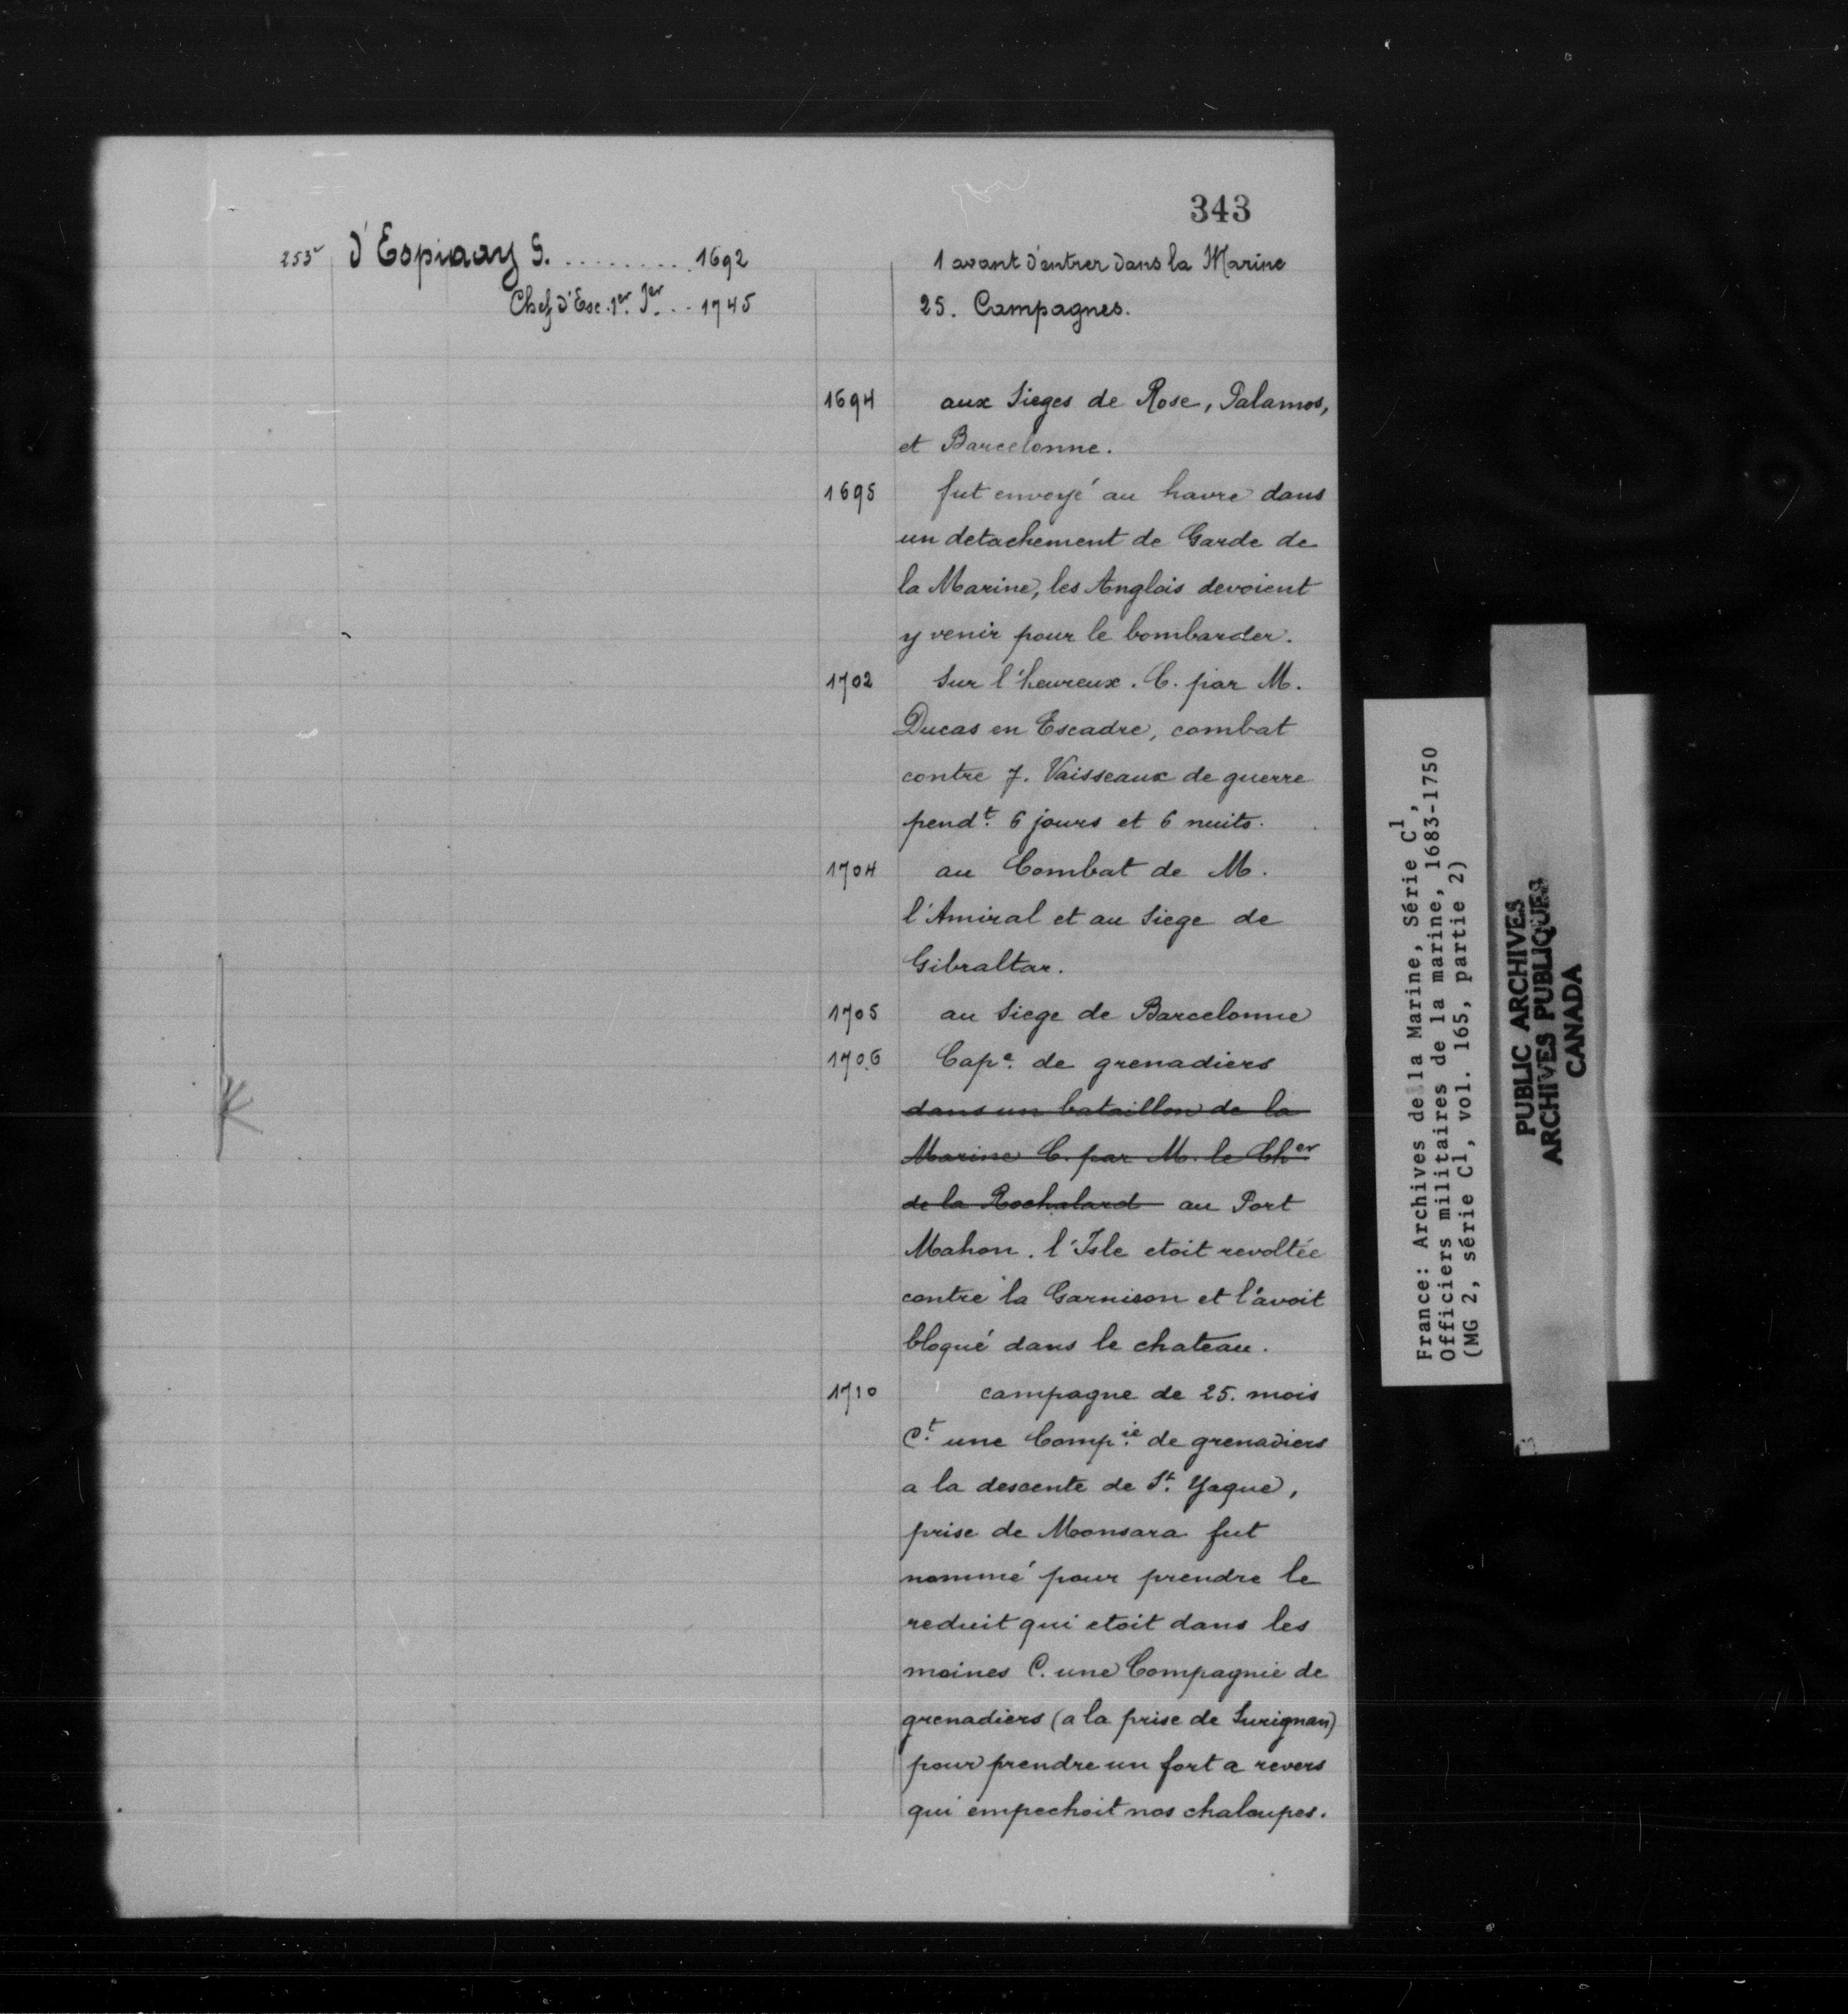 343
253v d'Espinay G. .......... 1692
Chef d'Esc. 1er. Jer. .. 1745
1 avant d'entrer dans la Marine
25. Campagnes.
1694 aux Sieges de Rose, Palamos,
et Barcelonne.
1695 fut envoyé au havre dans
un detachement de Garde de
la Marine, les Anglois devoient
y venir pour le bombarder.
1702 Sur l'heureux. C. par M.
Ducas en Escadre, combat
contre 7. Vaisseaux de guerre
pendt. 6 jours et 6 nuits.
1704 au Combat de M.
l'Amiral et au Siege de
Gibraltar.
1705 au Siege de Barcelonne
1706 Cape. de grenadiers
dans un bataillon de la
Marine C. par M. le Cher
de la Rochalard au Port
Mahon. l'Isle etoit revoltée
contre la Garnison et l'avoit
bloqué dans le chateau.
1710 campagne de 25. mois
Ct. une Compie. de grenadiers
a la descente de St. Yague,
prise de Monsara fut
nommé pour prendre le
reduit qui etoit dans les
moines C. une Compagnie de
grenadiers (a la prise de Surignan)
pour prendre un fort a revers
qui empechoit nos chaloupes.
France: Archives de la Marine, Série C1,
Officiers militaires de la marine, 1683-1750
(MG 2, série C1, vol. 165, partie 2)
PUBLIC ARCHIVES
ARCHIVES PUBLIQUES
CANADA